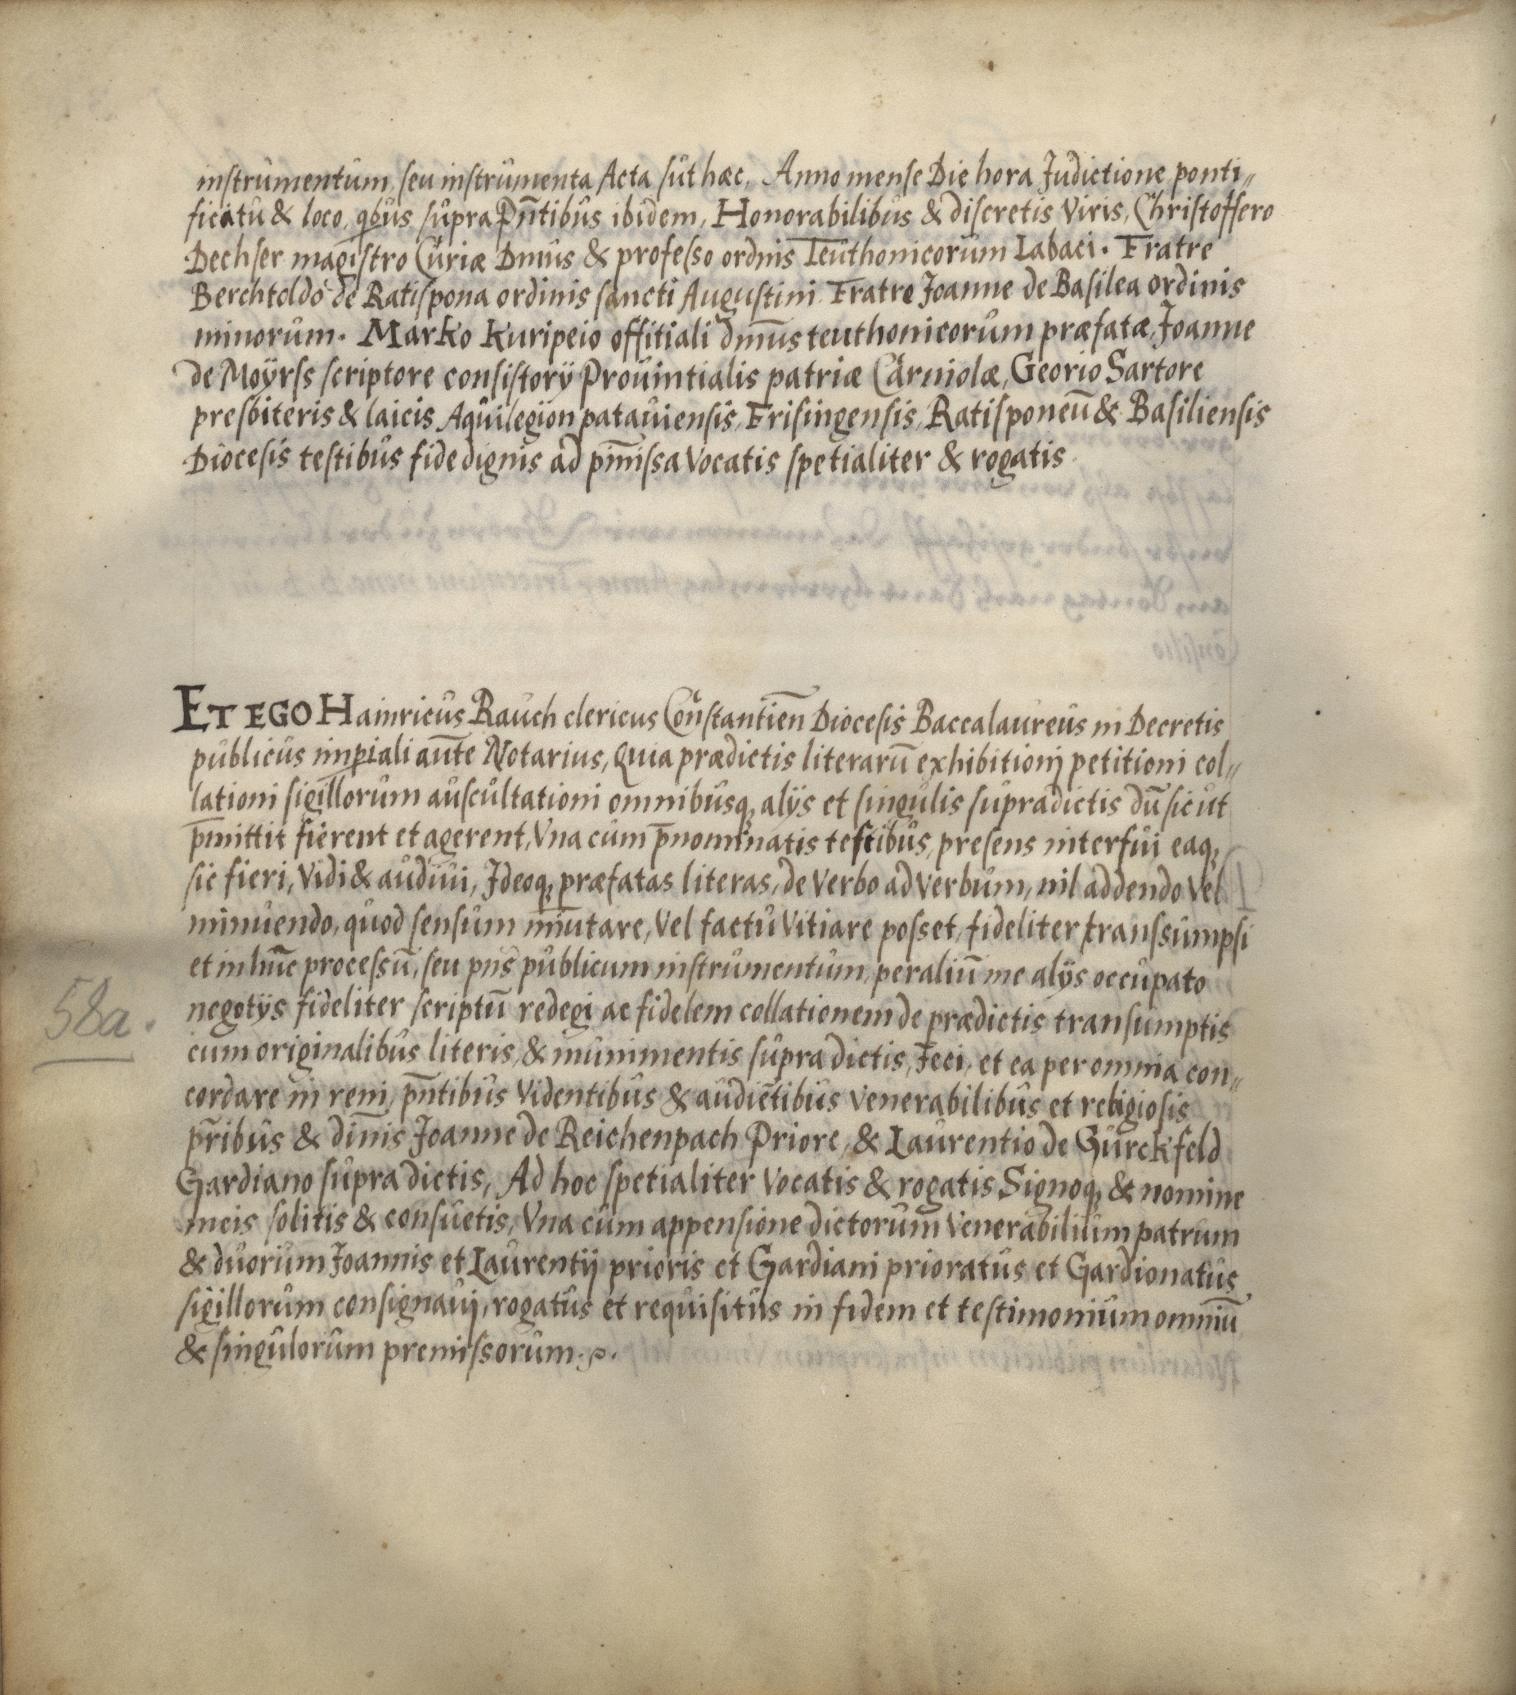 instrumentum, seu instrumenta Acta sūt hæc, Anno mense Die hora Judictione ponti„
ficatu & loco, qbus supra Pn̄tibus ibidem, Honorabilibus & discretis Viris, Christoffero
Dechser magistro Curiæ Dmus & professo ordnis Teuthonicorum Labaci. Fratre
Berchtoldo de Ratispona ordinis sancti Augustini Fratre Joanne de Basilea ordinis
minorum. Marko Kuripeio offitiali dm̄us teuthonicorum præfatæ, Joanne
de Moÿrss scriptore consistorÿ Prouintialis patriæ Carniolæ, Georio Sartore
presbiteris & laicis Aquilegion patauiensis, Frisingensis, Ratisponeū & Basiliensis
Diocesis testibus fide dignis ad pm̄issa Vocatis spetialiter & rogatis
ET EGO Hainricus Rauch clericus Constantien̄ Diocesis Baccalaureus in Decretis
publicus impiali aut̄e Notarius, Quia prædictis literarū exhibitionj petitioni col„
lationi sigillorum auscultationi omnibusq, alÿs et singulis supradictis dū sicut
p̄mittit fierent et agerent, Vna cum p̄nominatis testibus, presens interfui eaq,
sic fieri, Vidi & audiui, Jdeoq, præfatas literas, de Verbo ad Verbum, nil addendo Vel
minuendo, quod sensum im̄utare, Vel factū Vitiare posset, fideliter transsumpsi
et in hūc processū, seu pn̄s publicum instrumentum, per aliū me alÿs occupato
negotÿs fideliter scriptū redegi ac fidelem collationem de prædictis transumptis
cum originalibus literis, & munimentis supra dictis, feci, et ea per omnia con„
cordare in reni, pn̄tibus Videntibus & audiētibus Venerabilibus et religiosis
pr̄ibus & din̄is Joanne de Reichenpach Priore, & Laurentio de Gurckfeld
Gardiano supra dictis, Ad hoc spetialiter Vocatis & rogatis Signoq, & nomine
meis solitis & consuetis, Vna cum appensione dictorum Venerabilium patrum
& duorium Joannis et Laurentij prioris et Gardiani prioratus et Gardionatus
sigillorum consignauj, rogatus et requisitus in fidem et testimonium omniū
& singulorum premissorum.
58a.